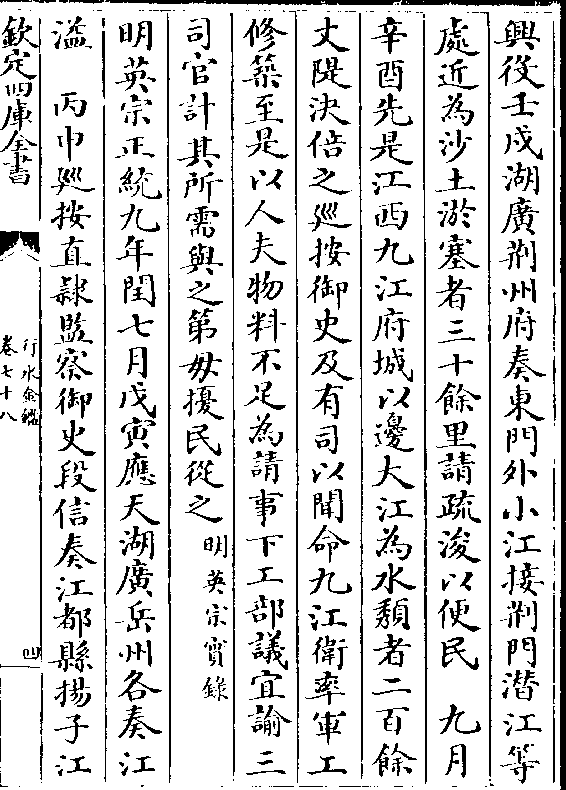 興役壬戌湖廣荆州府奏東門外小江接荆門潜江等
處近為沙土淤塞者三十餘里請疏浚以便民　九月
辛酉先是江西九江府城以邊大江為水頽者二百餘
丈隄決倍之廵按御史及有司以聞命九江衛率軍工
修築至是以人夫物料不足為請事下工部議宜諭三
司官計其所需與之第毋擾民從之明英宗實錄
明英宗正統九年閏七月戊寅應天湖廣岳州各奏江
溢　丙申廵按直隷監察御史段信奏江都縣揚子江
欽定四庫全書
行水金鑑
卷七十八
四